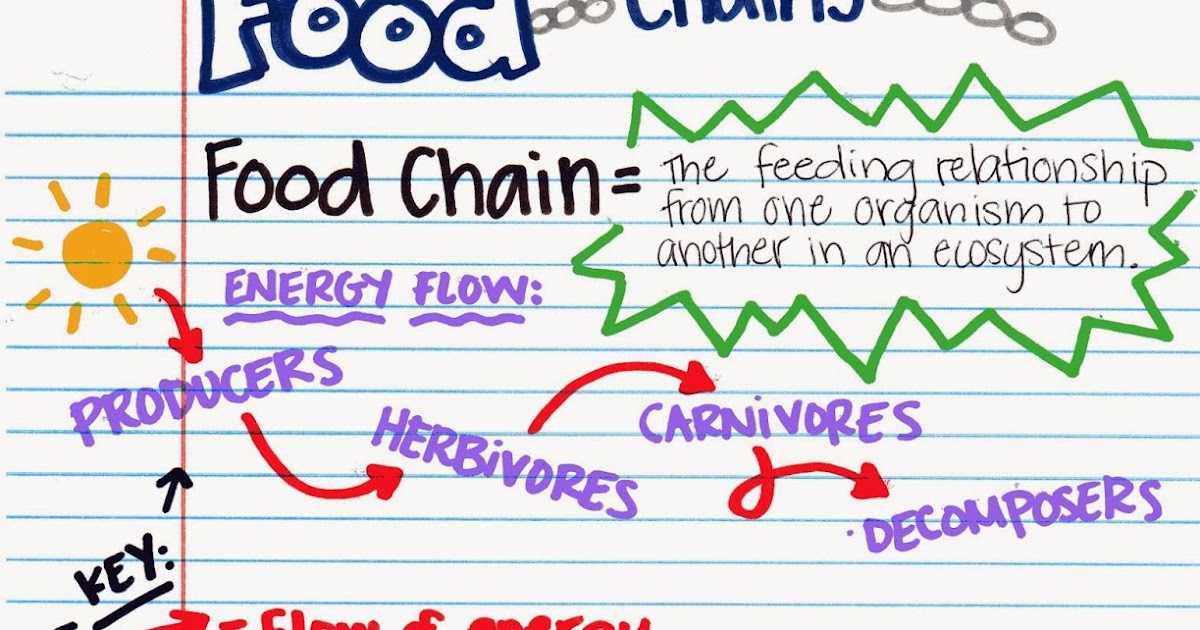 Food Chains
Food Chain = The feeding relationship
from one organism to
another in an ecosystem.
ENERGY FLOW:
PRODUCERS
HERBIVORES
CARNIVORES
DECOMPOSERS
KEY:
= Flow of energy